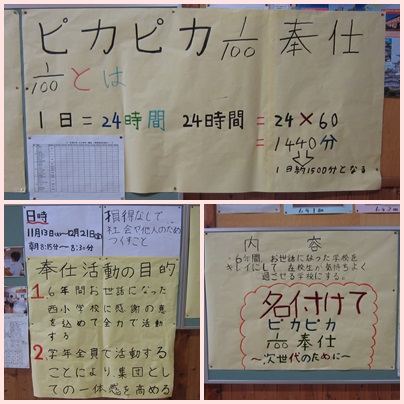 ピカピカ 1/100 奉仕
1/100とは
1日=24時間 24時間=24×60
=1440分
1日約1500分となる
日時
朝8:15分〜8:30分
損得なして
社会や他人のため
つくすこと
奉仕活動の目的
1 6年間お世話になった
西小学校に感謝の意
を込めて全力で活動
する
2 学年全員で活動する
ことにより、集団とし
ての一体感を高める
内容
6年間、お世話になった学校を
キレイにして、在校生が気持ちよく
過ごせる学校にする。
名付けて
ピカピカ
1/100 奉仕
〜次世代のために〜